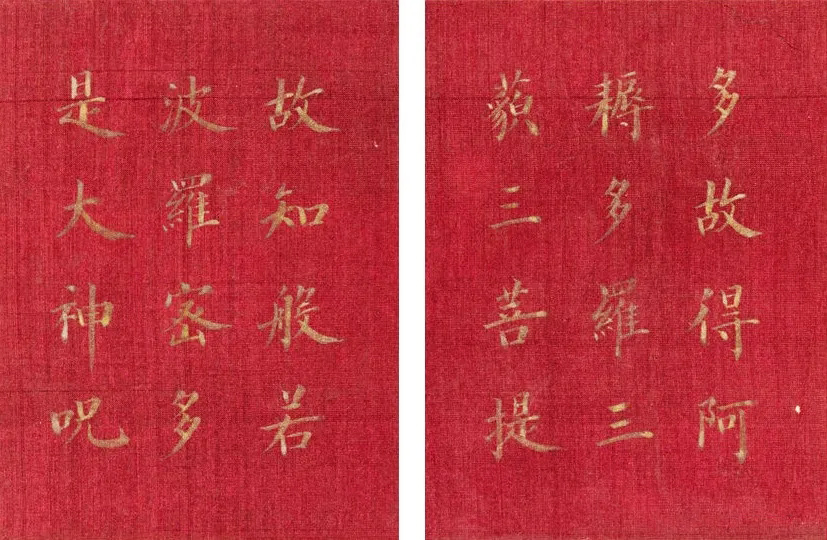 多故得阿
耨多羅三
藐三菩提
故知般若
波羅密多
是大神呪